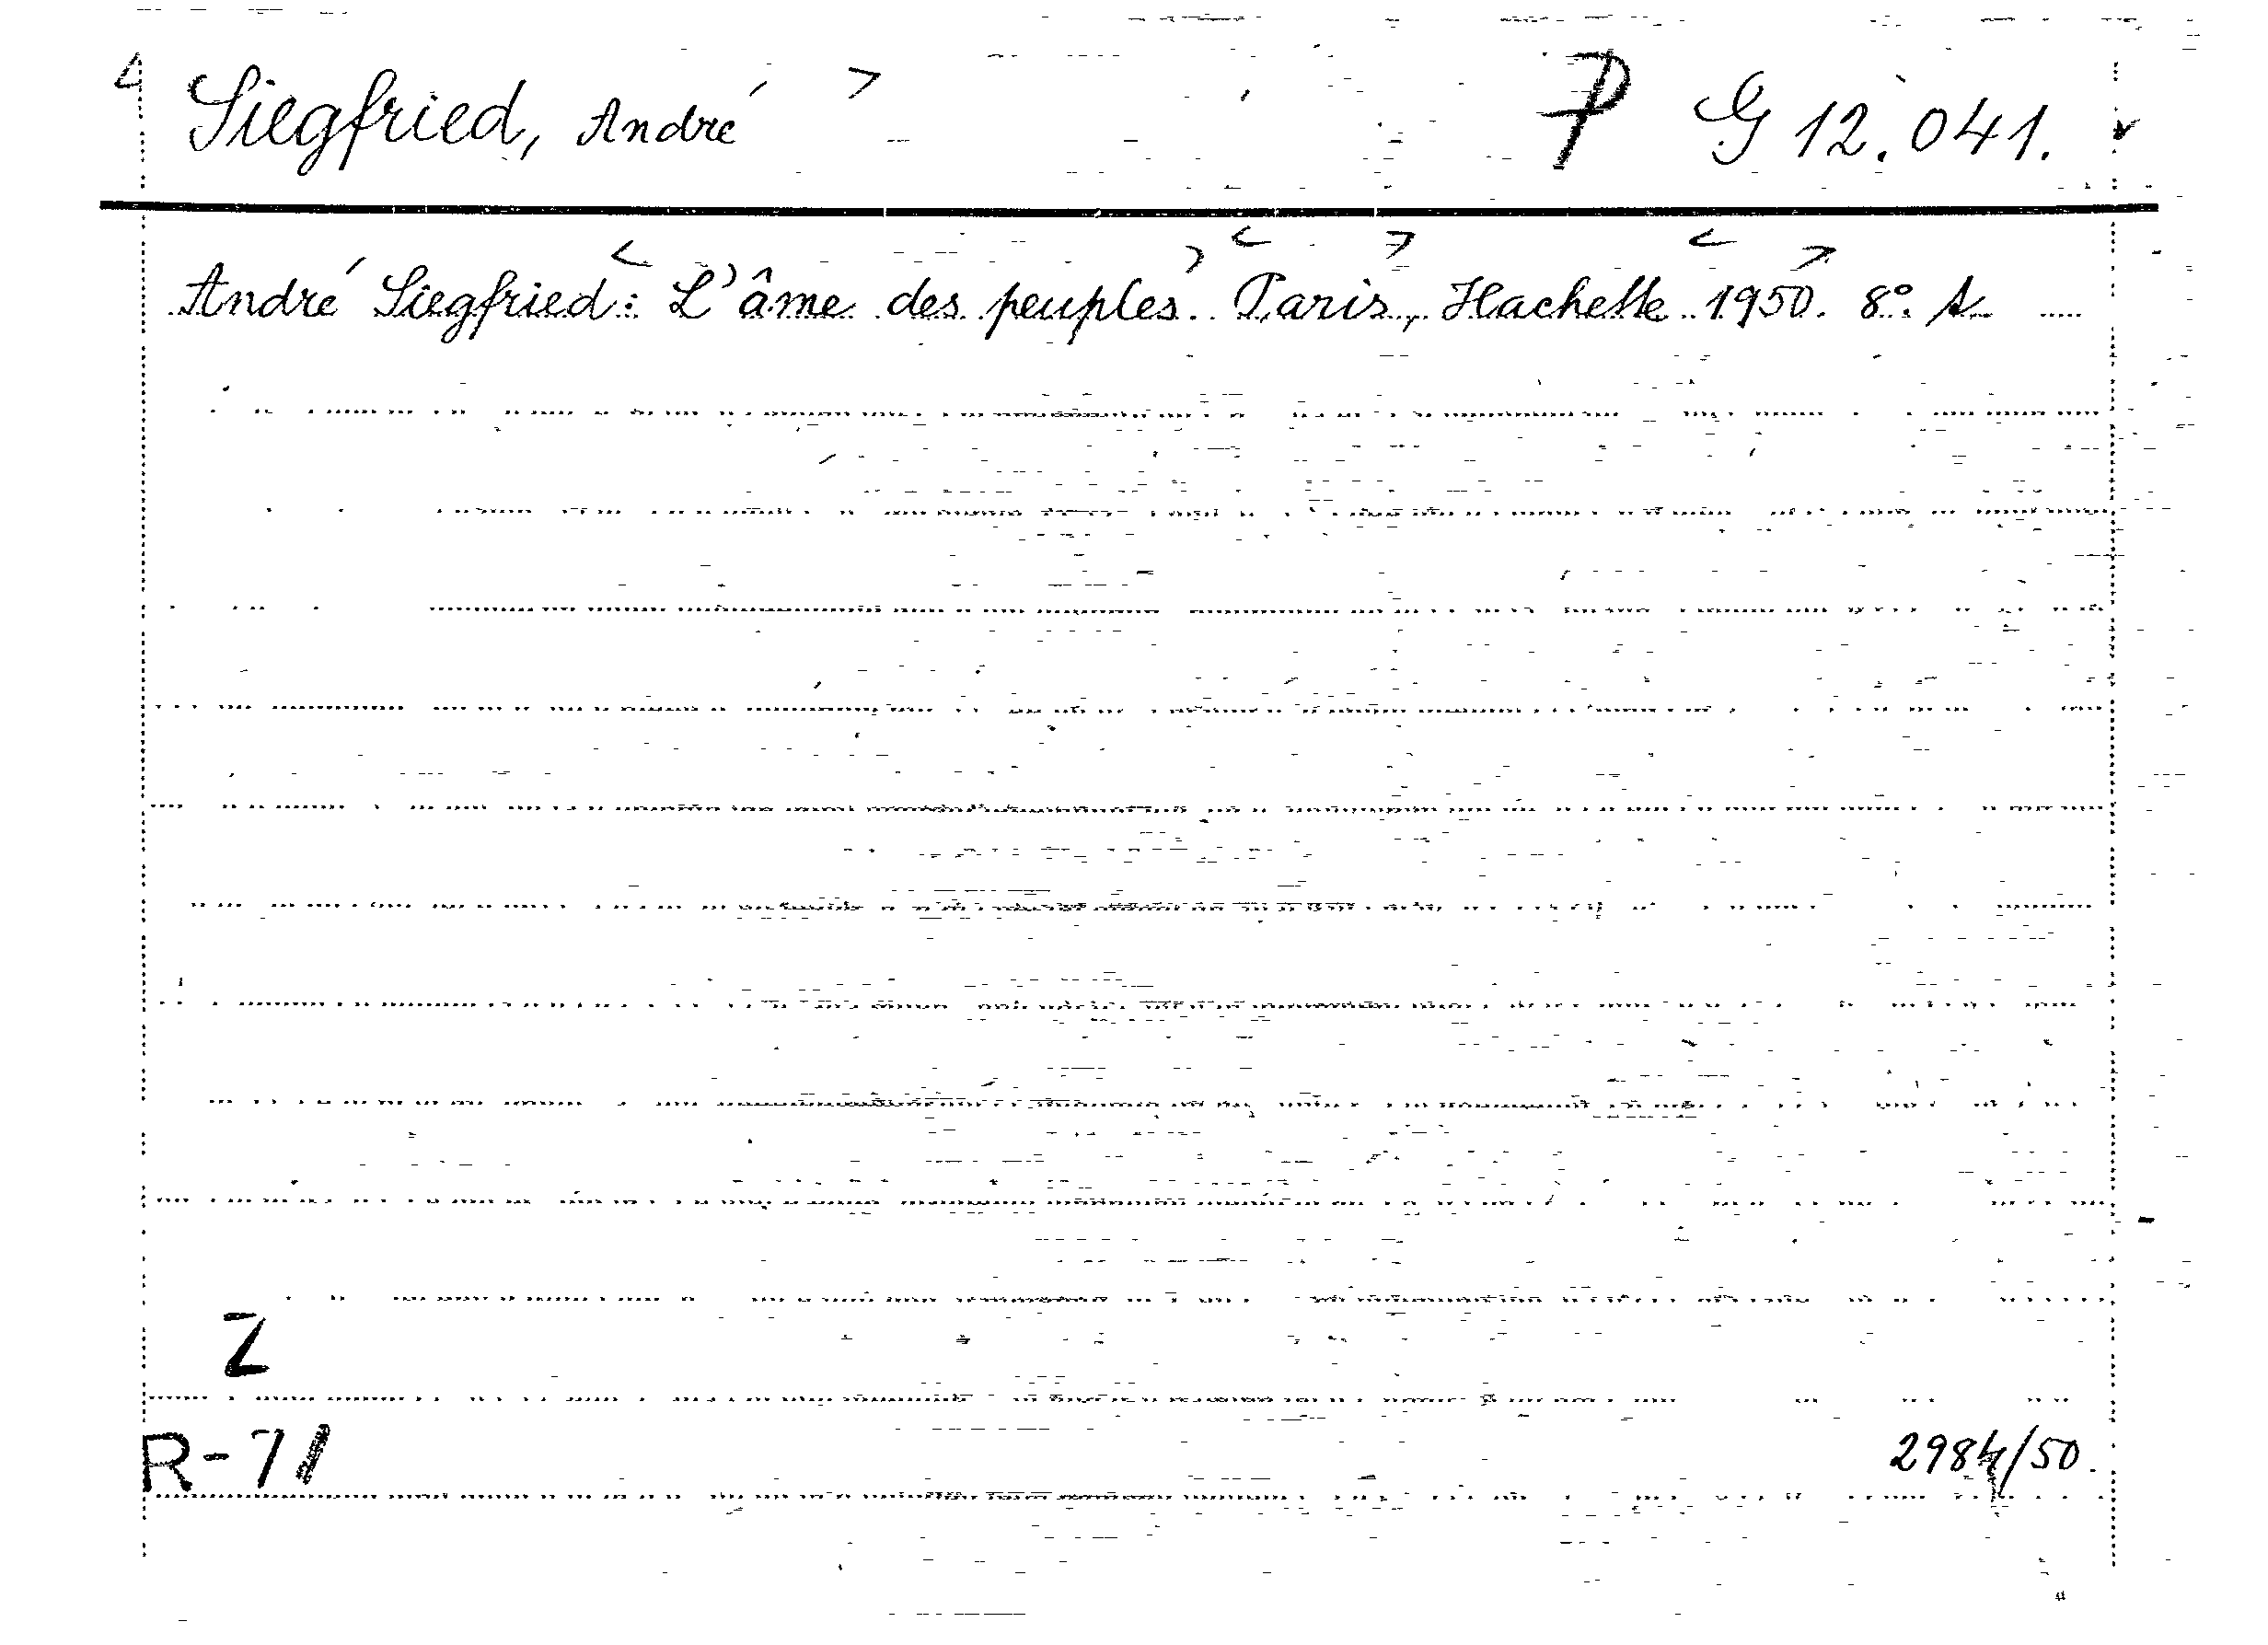 Siegfried, André P G 12.041.
André Siegfried: L'âme des peuples. Paris, Hachette 1950. 8°.
Z
R-71
2984/50.